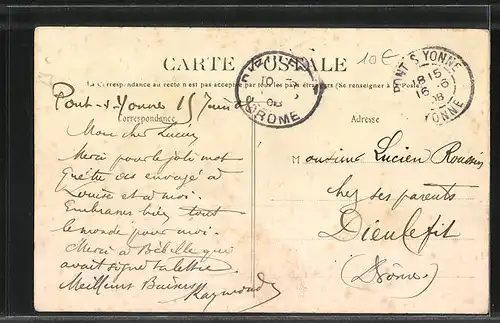 10€
CARTE POSTALE
La Correspondance au recto n'est pas acceptée par tous les pays étrangers (Se renseigner à la Poste)
PONT S. YONNE
1815
16-6
08
YONNE
DROME
08
Pont-s-Yonne 15 Juin 08
Correspondance
Adresse
Mon cher Lucien
Merci pour le joli mot
que tu as envoyé à
Louise et à moi.
Embrasse bien tout
le monde pour moi.
Merci à Bebelle qui
avait signé ta lettre
Meilleurs Baisers
Raymond
Monsieur Lucien Roussin
chez ses parents
Dieulefit
(Drôme)